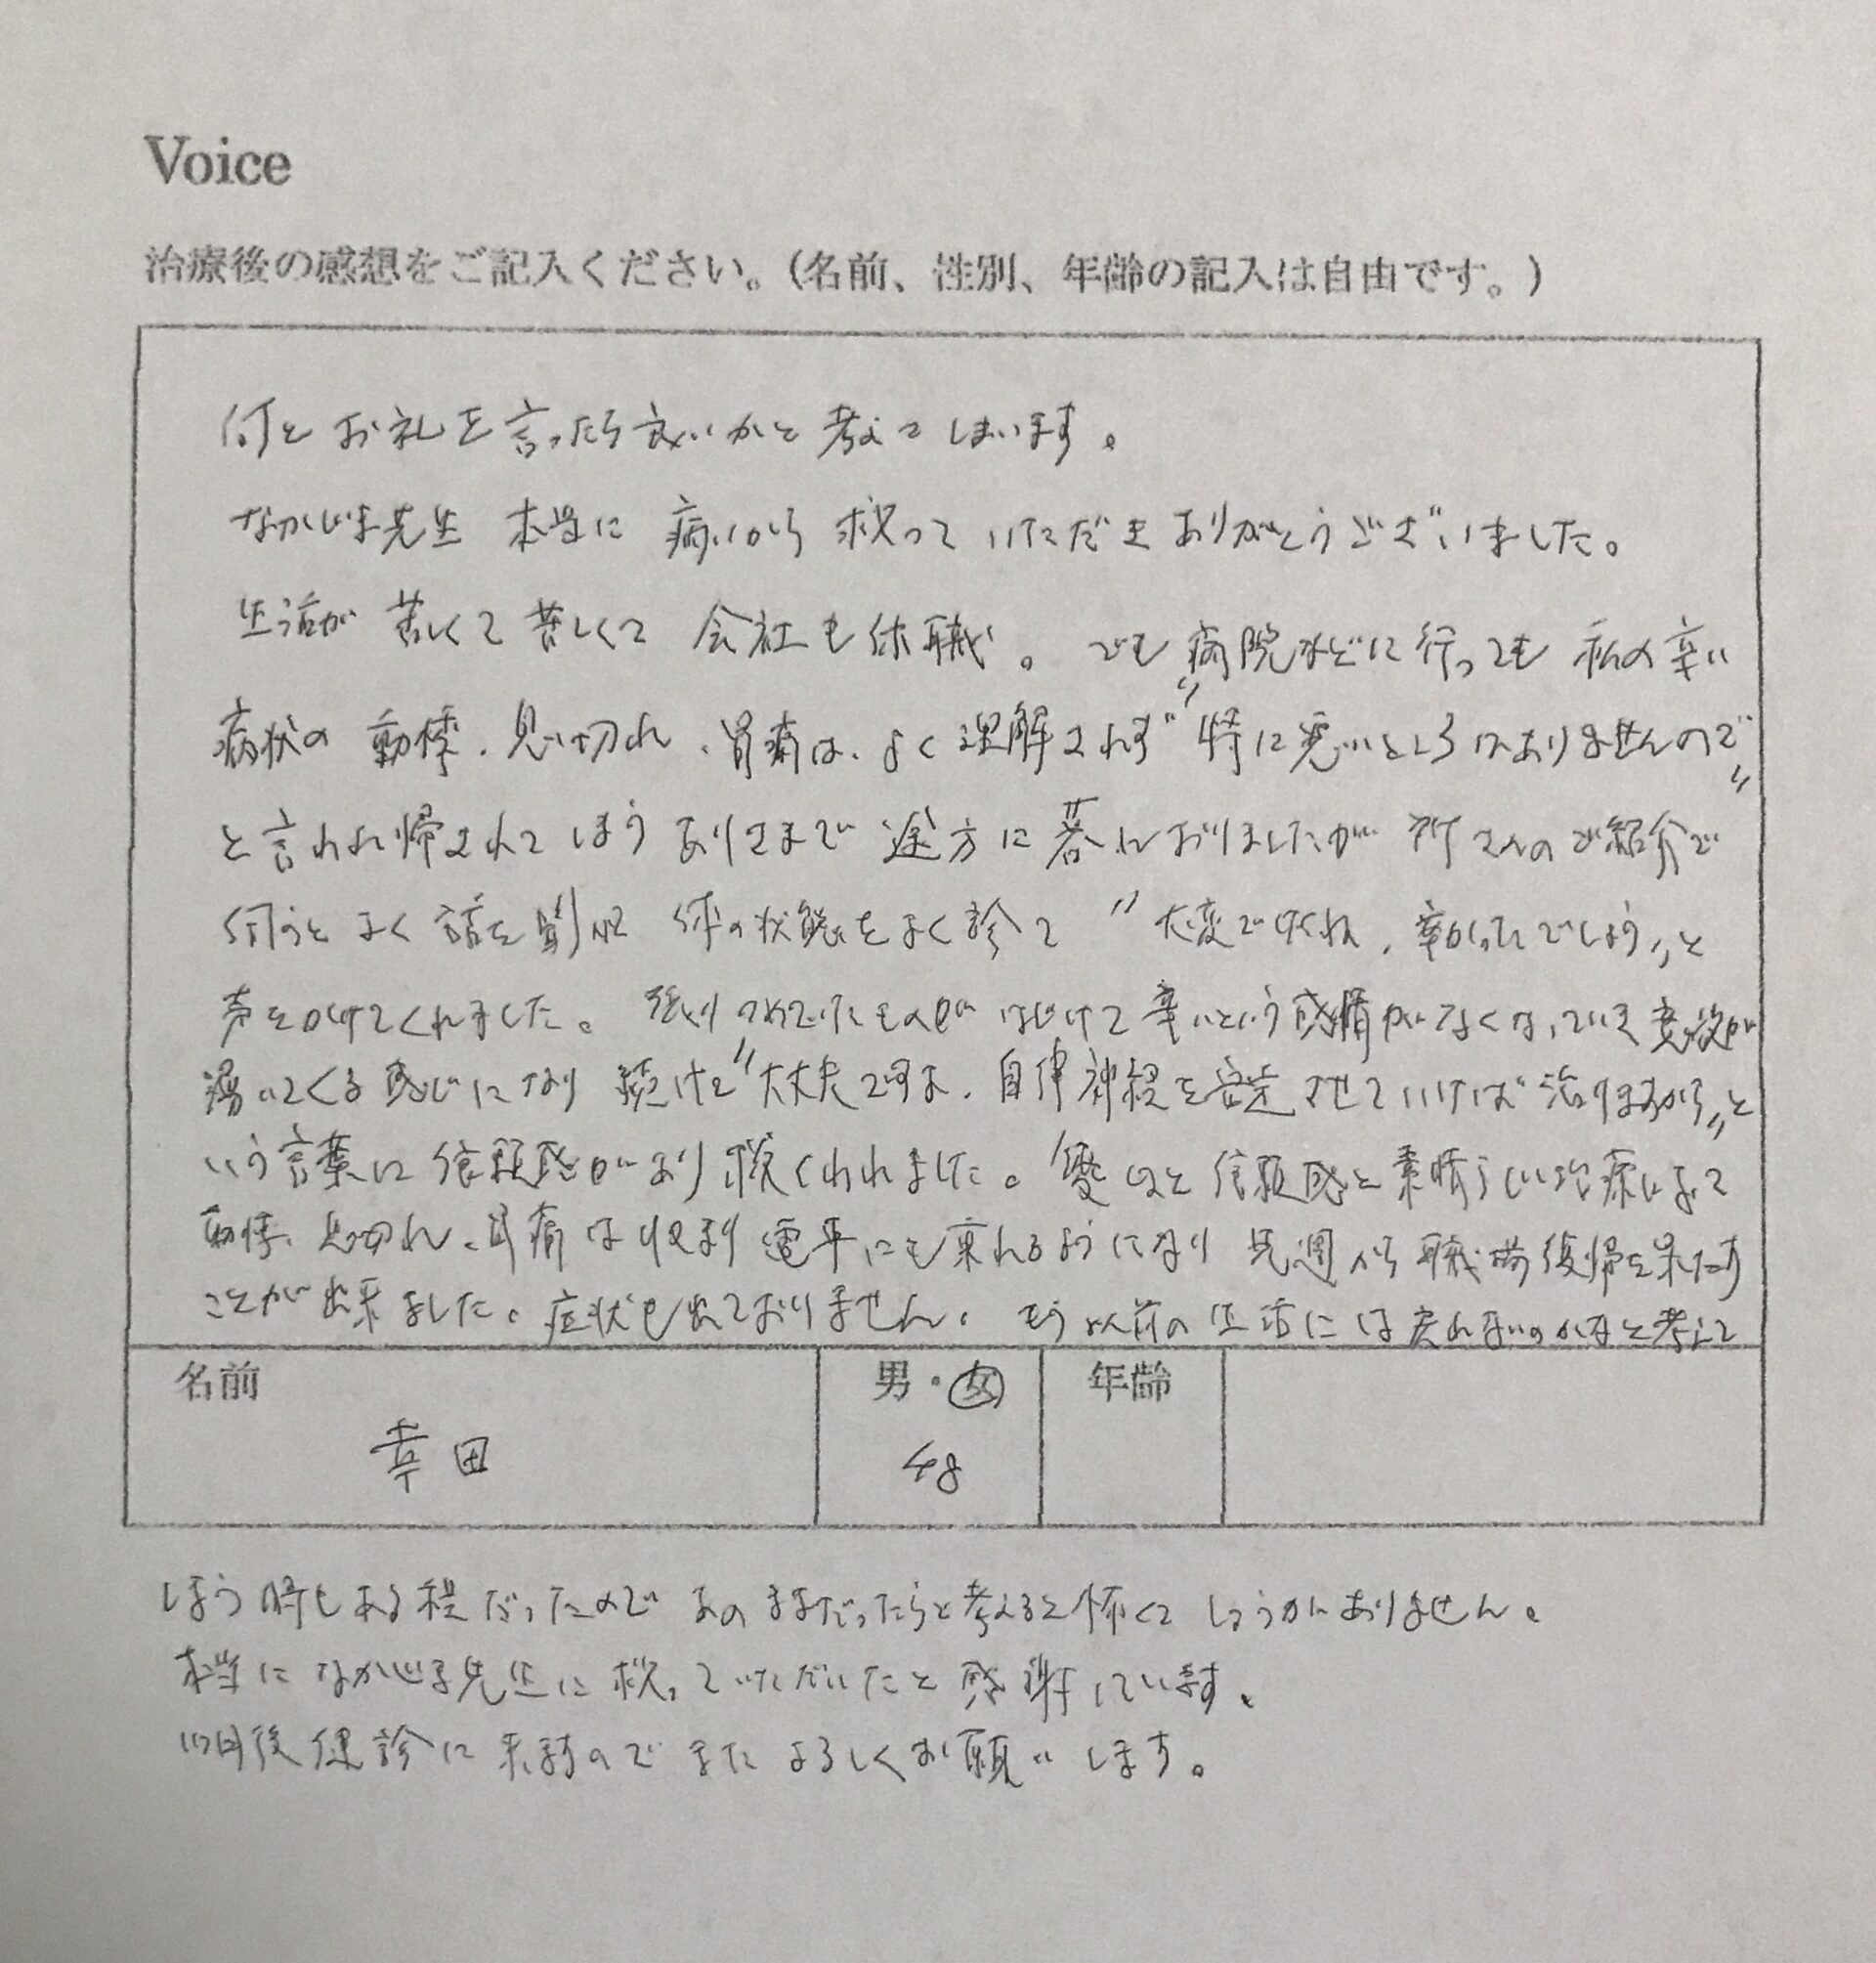 Voice
治療後の感想をご記入ください。(名前、性別、年齢の記入は自由です。)
何とお礼を言ったら良いかと考えてしまいます。
なかじま先生 本当に 病いから 救って いただき ありがとうございました。
生活が 苦しくて 苦しくて 会社も休職。 でも 病院などに行っても 私の辛い
病状の 動悸、息切れ、胃痛は、よく理解されず "特に悪いところはありませんので"
と言われ帰されてしまう ありさまで 途方に暮れおりましたが さんのご紹介で
伺うと よく 話を聞いて 体の状態をよく診て "大変でしたね、辛かったでしょう"と
声をかけてくれました。 張りつめていたものが はじけて 辛いという感情がなくなっていき 意欲が
湧いてくる感じになり 続けて "大丈夫ですよ、自律神経を安定させていければ 治りますから"と
いう言葉に 信頼感があり 救くわれました。 信頼感と素晴らしい治療によって
動悸、息切れ、胃痛は収まり 電車にも乗れるようになり 先週から 職場復帰を果たす
ことが出来ました。症状も出ておりません。 もう以前の生活には戻れないのかなと考えて
名前 男・女 年齢
幸田 48
しまう時もある程だったので あのままだったらと考えると怖くて しょうがありません。
本当に なかじま先生に 救っていただいたと 感謝しています。
日後健診に 来ますので また よろしくお願いします。